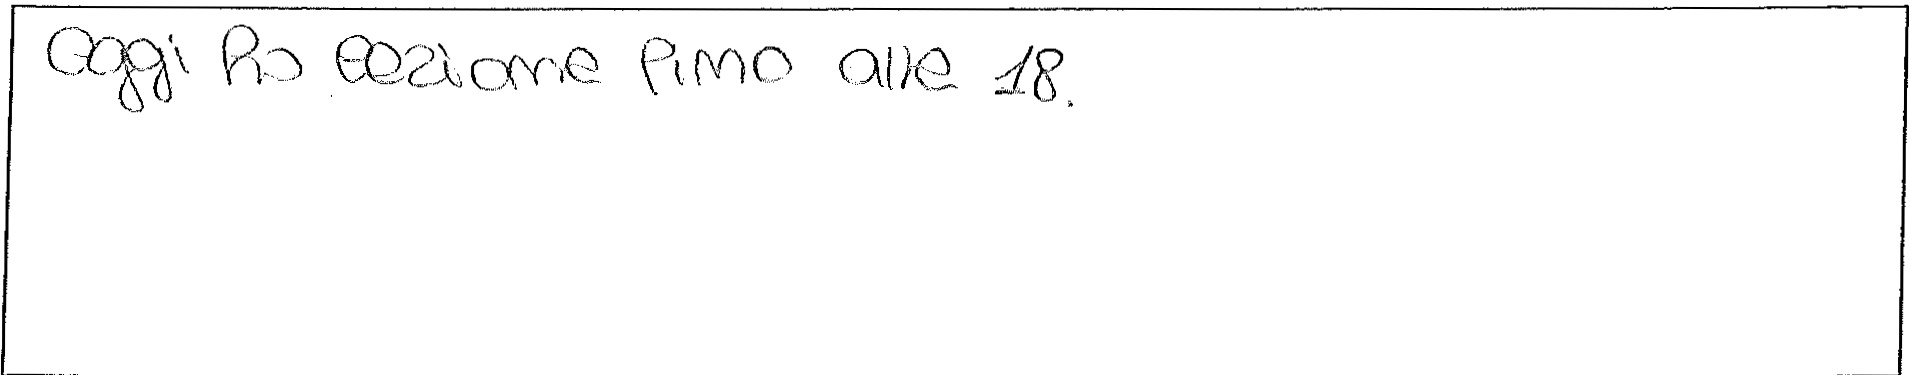 Oggi ho lezione fino alle 18.